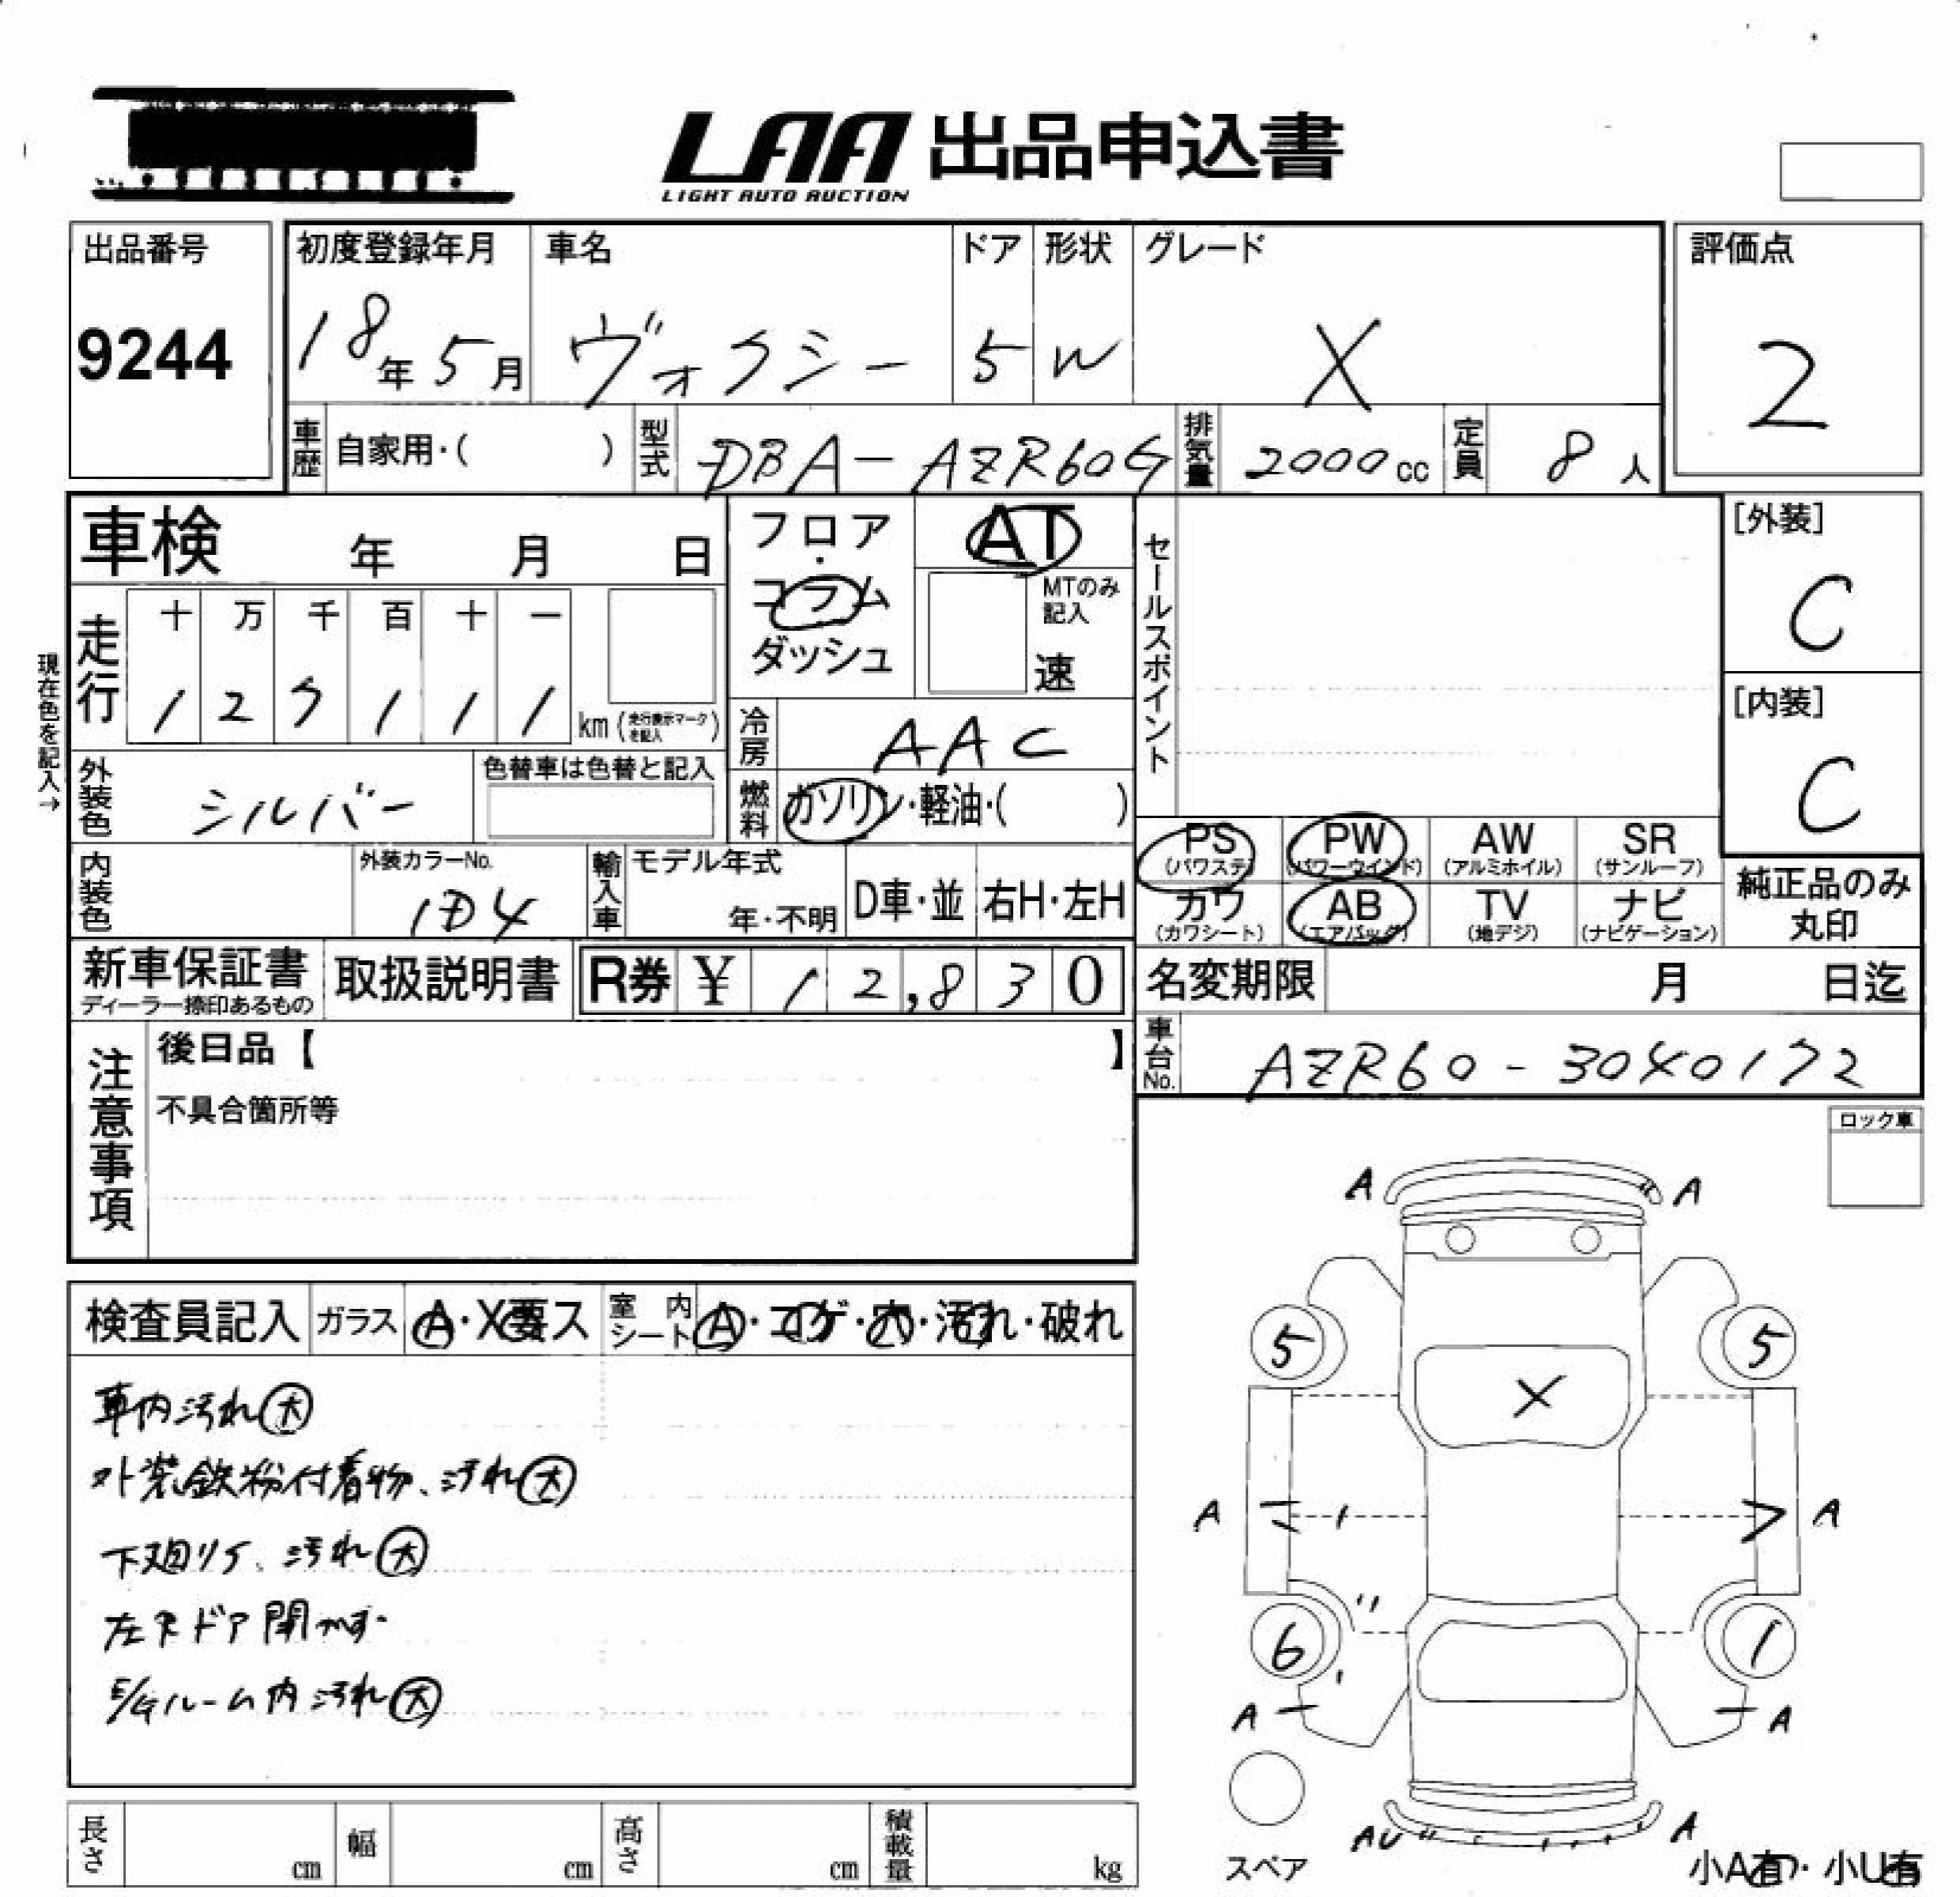 LAA 出品申込書
LIGHT AUTO AUCTION
出品番号 初度登録年月 車名 ドア 形状 グレード 評価点
9244 18年 5月 ヴォクシー 5 W X 2
車歴 自家用・( ) 型式 DBA-AZR60G 排気量 2000cc 定員 8人
車検 年 月 日 フロア・コラム ダッシュ AT セールスポイント [外装]
C
MTのみ記入
速
現在色を記入→
走行 十 万 千 百 十 一
1 2 7 1 1 1 km (走行表示マークを記入)
冷房 AAC
[内装]
C
外装色 シルバー 色替車は色替と記入 燃料 ガソリン・軽油・( )
PS (パワステ) PW (パワーウインド) AW (アルミホイル) SR (サンルーフ)
内装色 外装カラーNo. 1D4 輸入車 モデル年式 年・不明 D車・並 右H・左H
カワ (カワシート) AB (エアバッグ) TV (地デジ) ナビ (ナビゲーション) 純正品のみ丸印
新車保証書 ディーラー捺印あるもの 取扱説明書 R券 ¥ 12,830 名変期限 月 日迄
注意事項 後日品【 】 車台No. AZR60-3040172
不具合箇所等
ロック車
A A
検査員記入 ガラス A・X要ス 室内シート A・コゲ・穴・汚れ・破れ
5 5
車内汚れ大 X
外装鉄粉付着物、汚れ大
A A
下廻りS、汚れ大
左Rドア開かず
6 1
E/Gルーム内汚れ大
A A
長さ cm 幅 cm 高さ cm 積載量 kg
AU A
スペア 小A有・小U有